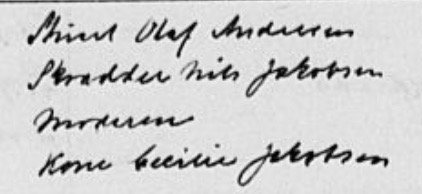 Olaf Andersen
Skrædder Nils Jakobsen
Moderen
Kone Cecilie Jakobsen